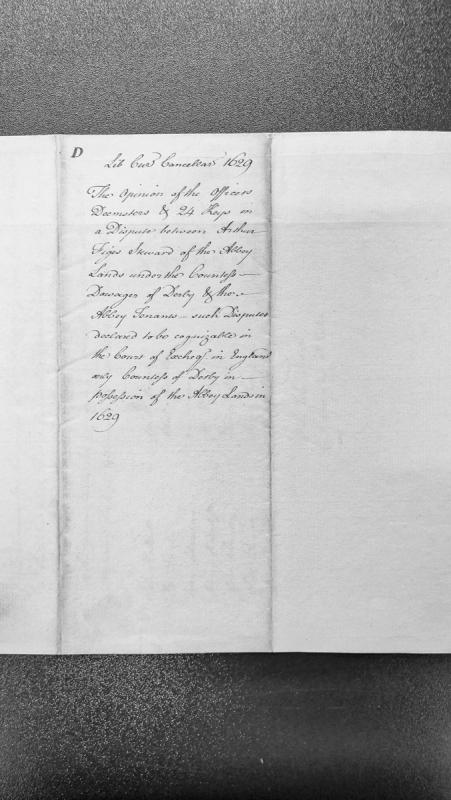 D
Lib Cur Cancellar 1629
The Opinion of the Officers
Deemsters & 24 Keys in
a Dispute between Arthur
Figes Steward of the Abbey
Lands under the Countess
Dowager of Derby & the
Abbey Tenants – such Disputes
declared to be cognizable in
the Court of Excheqr. in England
Countess of Derby in
possession of the Abbey Lands in
1629